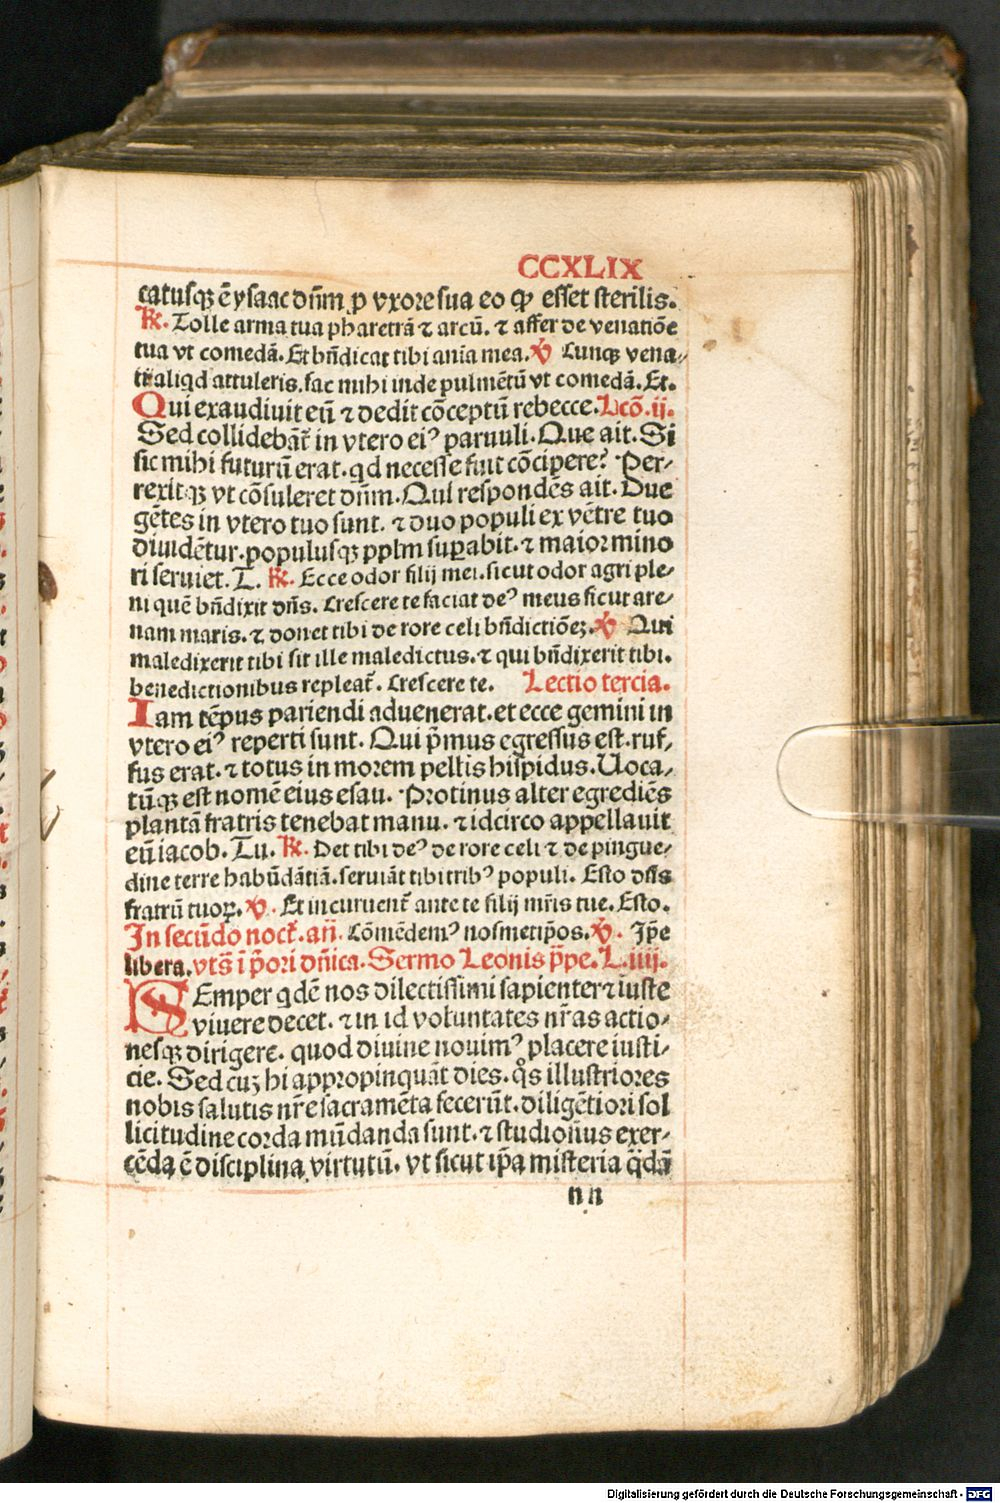 CCXLIX
catusqꝫ ē ysaac dn̄m ꝓ vxore sua eo ꝙ esset sterilis.
℟. Tolle arma tua pharetrā ⁊ arcū. ⁊ affer de venatiōe
tua vt comedā. Et bn̄dicat tibi anīa mea. ℣ Cunqꝫ vena⸗
tu aliqd attuleris. fac mihi inde pulmētū vt comedā. Et.
Qui exaudiuit eū ⁊ dedit cōceptū rebecce. Lcō. ij.
Sed collidebāt᷑ in vtero eiꝰ paruuli. Que ait. Si
sic mihi futurū erat. qd necesse fuit cōcipere? Per⸗
rexitqꝫ vt cōsuleret dn̄m. Qui respondēs ait. Due
gētes in vtero tuo sunt. ⁊ duo populi ex vētre tuo
diuidētur. populusqꝫ pplm suꝑabit. ⁊ maior mino
ri seruiet. T. ℟. Ecce odor filij mei. sicut odor agri ple⸗
ni quē bn̄dixit dn̄s. Crescere te faciat deꝰ meus sicut are⸗
nam maris. ⁊ donet tibi de rore celi bn̄dictiōeꝫ. ℣ Qui
maledixerit tibi sit ille maledictus. ⁊ qui bn̄dixerit tibi.
benedictionibus repleat᷑. Crescere te. Lectio tercia.
Iam tēpus pariendi aduenerat. et ecce gemini in
vtero eiꝰ reperti sunt. Qui p̄mus egressus est. ruf⸗
fus erat. ⁊ totus in morem pellis hispidus. Uoca⸗
tūqꝫ est nomē eius esau. Protinus alter egrediēs
plantā fratris tenebat manu. ⁊ idcirco appellauit
eū iacob. Tu. ℟. Det tibi deꝰ de rore celi ⁊ de pingue⸗
dine terre habūdātiā. seruiāt tibi tribꝰ populi. Esto dn̄s
fratrū tuoꝝ. ℣. Et incuruent᷑ ante te filij mr̄is tue. Esto.
In secūdo noct᷑. an̄. Cōmēdemꝰ nosmetip̄os. ℣. Ip̄e
libera. vts̄ ī p̄ori dn̄ica. Sermo Leonis p̄pe. L. iiij.
SEmper qdē nos dilectissimi sapienter ⁊ iuste
viuere decet. ⁊ in id voluntates nr̄as actio⸗
nesqꝫ dirigere. quod diuine nouimꝰ placere iusti⸗
cie. Sed cuꝫ hi appropinquāt dies. qͦs illustriores
nobis salutis nr̄e sacramēta fecerūt. diligētiori sol
licitudine corda mūdanda sunt. ⁊ studiosius exer⸗
cēda ē disciplina virtutū. vt sicut ip̄a misteria q̄dā
nn
Digitalisierung gefördert durch die Deutsche Forschungsgemeinschaft - DFG